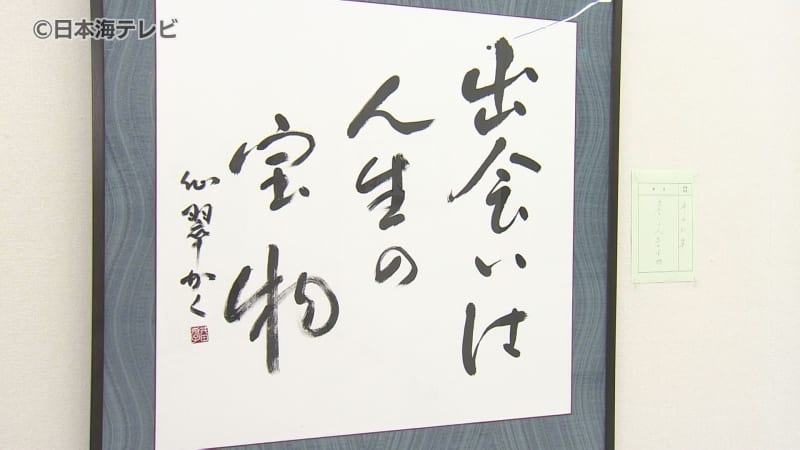 ©日本海テレビ
出会いは
人生の
宝物
心翠かく